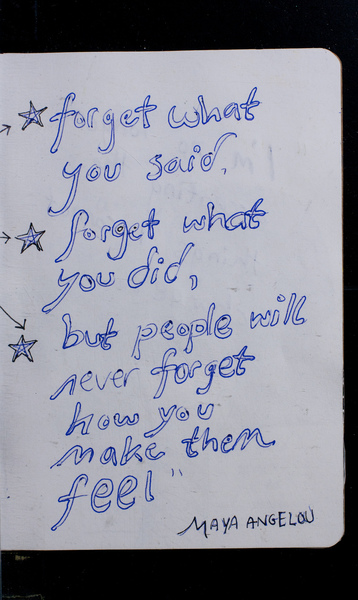 forget what
you said,
forget what
you did,
but people will
never forget
how you
make them
feel"
MAYA ANGELOU